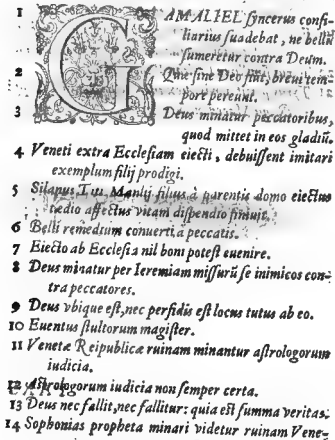 1 GAMALIEL syncerus consi-
liarius suadebat, ne bellũ
sumeretur contra Deum.
2 Quæ sine Deo fiũt, breui tem-
pore pereunt.
3 Deus minatur peccatoribus,
quod mittet in eos gladiũ.
4 Veneti extra Ecclesiam eiecti, debuissent imitari
exemplum filij prodigi.
5 Silanus Titi Manlij filius à parentis domo eiectus
tædio affectus vitam dispendio finiuit.
6 Belli remedium conuerti à peccatis.
7 Eiecto ab Ecclesia nil boni potest euenire.
8 Deus minatur per Ieremiam missurũ se inimicos con-
tra peccatores.
9 Deus vbique est, nec perfidis est locus tutus ab eo.
10 Euentus stultorum magister.
11 Venetæ Reipublicæ ruinam minantur astrologorum
iudicia.
12 Astrologorum iudicia non semper certa.
13 Deus nec fallit, nec fallitur: quia est summa veritas.
14 Sophonias propheta minari videtur ruinam Vene-